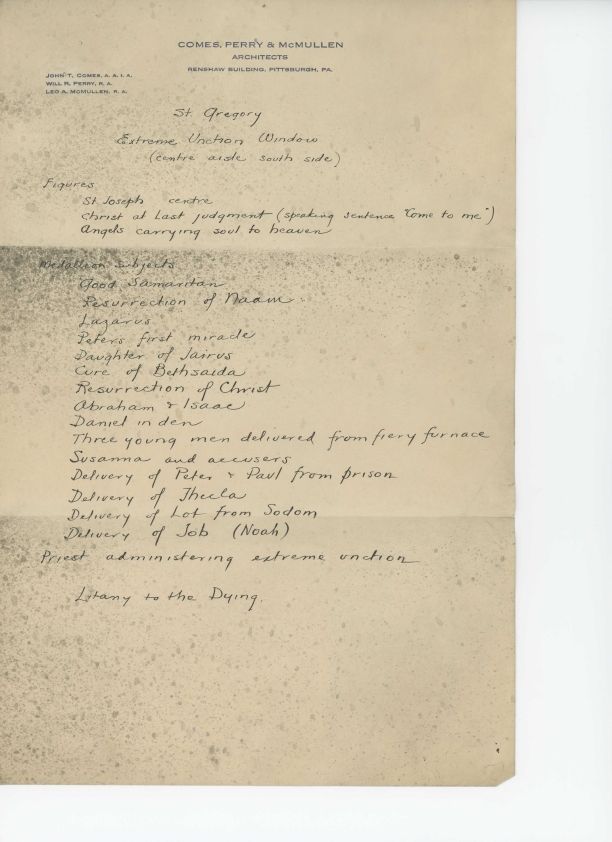 COMES, PERRY & McMULLEN
ARCHITECTS
RENSHAW BUILDING, PITTSBURGH, PA.
JOHN T. COMES, A. A. I. A.
WILL R. PERRY, R. A.
LEO A. McMULLEN, R. A.
St. Gregory
Extreme Unction Window
(centre aisle south side)
Figures
St Joseph centre
Christ at Last judgment (speaking sentence "Come to me")
Angels carrying soul to heaven
Medallion subjects
Good Samaritan
Resurrection of Naam
Lazarus
Peters first miracle
Daughter of Jairus
Cure of Bethsaida
Resurrection of Christ
Abraham & Isaac
Daniel in den
Three young men delivered from fiery furnace
Susanna and accusers
Delivery of Peter & Paul from prison
Delivery of Thecla
Delivery of Lot from Sodom
Delivery of Job (Noah)
Priest administering extreme unction
Litany to the Dying.